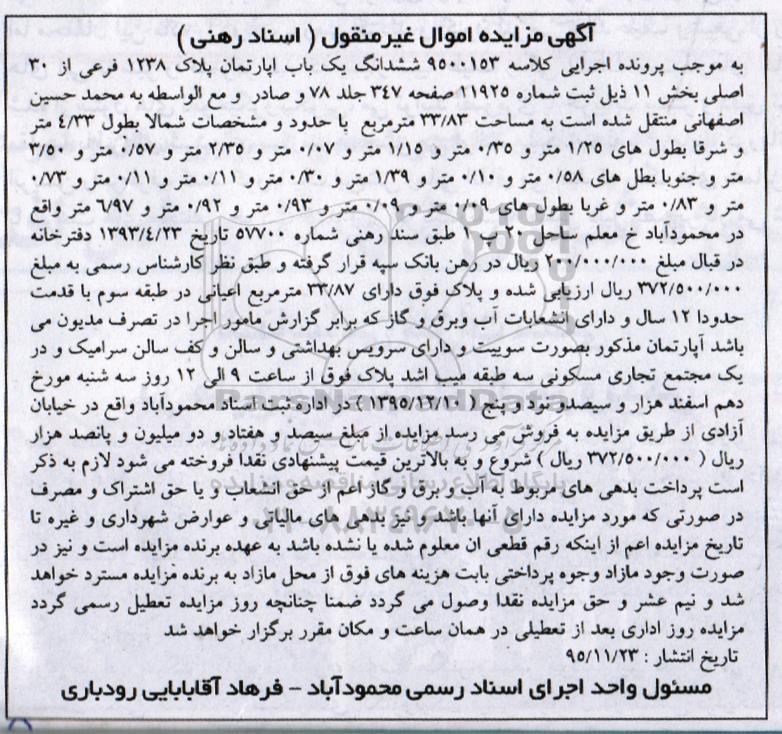 آگهی مزایده اموال غیرمنقول ( اسناد رهنی )
به موجب پرونده اجرایی کلاسه ۹۵۰۰۱۵۳ ششدانگ یک باب اپارتمان پلاک ۱۲۳۸ فرعی از ۳۰
اصلی بخش ۱۱ ذیل ثبت شماره ۱۱۹۲۵ صفحه ۳۴۷ جلد ۷۸ و صادر و مع الواسطه به محمد حسین
اصفهانی منتقل شده است به مساحت ۳۳/۸۳ مترمربع با حدود و مشخصات شمالا بطول ۴/۳۳ متر
و شرقا بطول های ۱/۲۵ متر و ۰/۳۵ متر و ۱/۱۵ متر و ۰/۰۷ متر و ۲/۳۵ متر و ۰/۵۷ متر و ۳/۵۰
متر و جنوبا بطل های ۰/۵۸ متر و ۰/۱۰ متر و ۱/۳۹ متر و ۰/۳۰ متر و ۰/۱۱ متر و ۰/۱۱ متر و ۰/۷۳
متر و ۰/۸۳ متر و غربا بطول های ۰/۰۹ متر و ۰/۰۹ متر و ۰/۹۳ متر و ۰/۹۲ متر و ۶/۹۷ متر واقع
در محمودآباد خ معلم ساحل ۲۰ متری ۱۰ طبق سند رهنی شماره ۵۷۷۰۰ تاریخ ۱۳۹۳/۴/۲۳ دفترخانه
در قبال مبلغ ۲۰۰/۰۰۰/۰۰۰ ریال در رهن بانک سپه قرار گرفته و طبق نظر کارشناس رسمی به مبلغ
۳۷۲/۵۰۰/۰۰۰ ریال ارزیابی شده و پلاک فوق دارای ۳۳/۸۷ مترمربع اعیانی در طبقه سوم با قدمت
حدودا ۱۲ سال و دارای انشعابات آب وبرق و گاز که برابر گزارش مامور اجرا در تصرف مدیون می
باشد آپارتمان مذکور بصورت سوییت و دارای سرویس بهداشتی و سالن و کف سالن سرامیک و در
یک مجتمع تجاری مسکونی سه طبقه میب اشد پلاک فوق از ساعت ۹ الی ۱۲ روز سه شنبه مورخ
دهم اسفند هزار و سیصدو نود و پنج ( ۱۳۹۵/۱۲/۱۰ ) در اداره ثبت اسناد محمودآباد واقع در خیابان
آزادی از طریق مزایده به فروش می رسد مزایده از مبلغ سیصد و هفتاد و دو میلیون و پانصد هزار
ریال ( ۳۷۲/۵۰۰/۰۰۰ ریال ) شروع و به بالاترین قیمت پیشنهادی نقدا فروخته می شود لازم به ذکر
است پرداخت بدهی های مربوط به آب و برق و گاز اعم از حق انشعاب و یا حق اشتراک و مصرف
در صورتی که مورد مزایده دارای آنها باشد و نیز بدهی های مالیاتی و عوارض شهرداری و غیره تا
تاریخ مزایده اعم از اینکه رقم قطعی ان معلوم شده یا نشده باشد به عهده برنده مزایده است و نیز در
صورت وجود مازاد وجوه پرداختی بابت هزینه های فوق از محل مازاد به برنده مزایده مسترد خواهد
شد و نیم عشر و حق مزایده نقدا وصول می گردد ضمنا چنانچه روز مزایده تعطیل رسمی گردد
مزایده روز اداری بعد از تعطیلی در همان ساعت و مکان مقرر برگزار خواهد شد
تاریخ انتشار : ۹۵/۱۱/۲۳
مسئول واحد اجرای اسناد رسمی محمودآباد - فرهاد آقابابایی رودباری
ParsNamadData
پایگاه اطلاع رسانی مناقصه و مزایده
۰۲۱-۸۸۳۴۹۶۷۰-۵